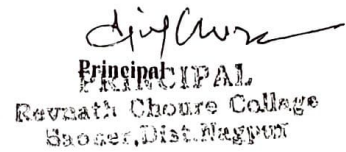 Principal
PRINCIPAL
Revnath Choure College
Saoner, Dist. Nagpur